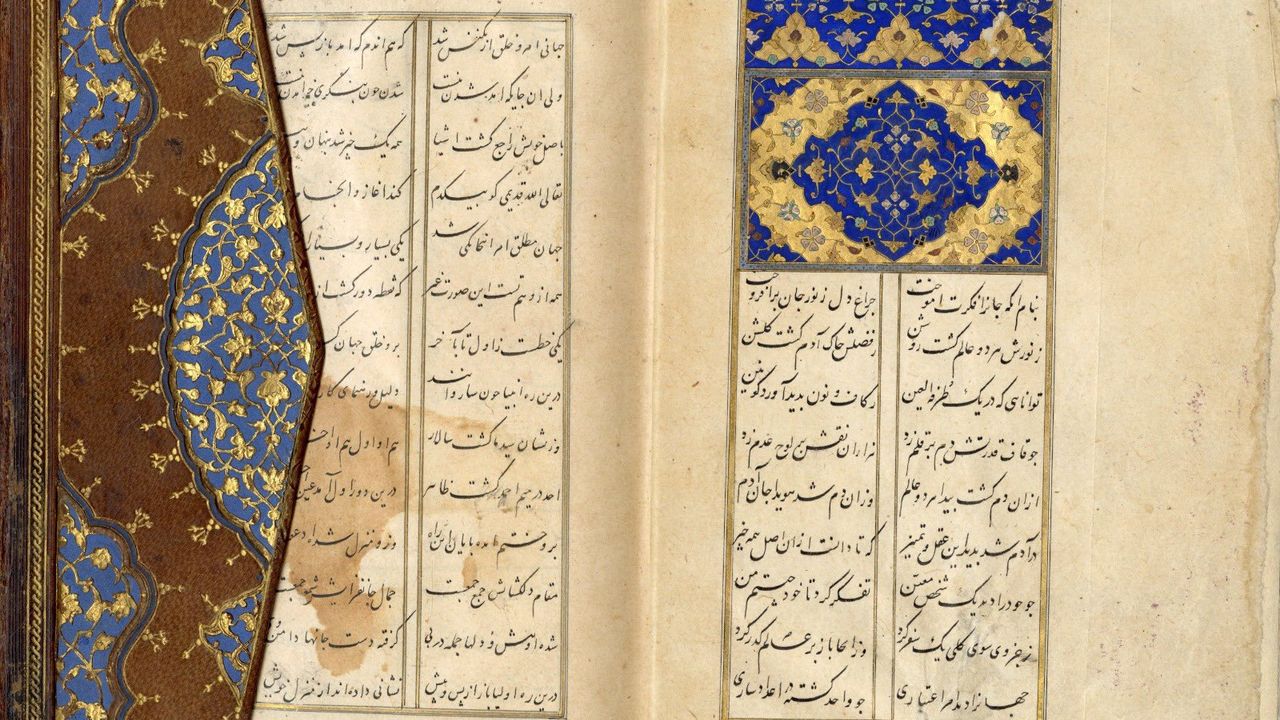 بنام آنکه جانرا فکرت آموخت چراغ دل ز نور جان برافروخت
ز نورش هر دو عالم گشت روشن ز فضلش خاک آدم گشت گلشن
توانایی که در یک طرفة العین ز کاف و نون پدید آورد کونین
چو قاف قدرتش دم بر قلم زد هزاران نقش بر لوح عدم زد
از ان دم گشت پیدا هر دو عالم وزان دم شد هویدا جان آدم
در آدم شد پدید این عقل و تمییز که تا دانست از ان اصل همه چیز
چو خود را دید یک شخص معین تفکر کرد تا خود چیستم من
ز جزوی سوی کلی یک سفر کرد وز انجا باز بر عالم گذر کرد
جهانرا دید امر اعتباری چو واحد گشته در اعداد ساری
جهان امر و خلق از یکنفس شد که هم اندم که امد باز پس شد
ولی ان جایگه امد شدن نیست شدن چون بنگری جز امدن نیست
باصل خویش راجع گشت اشیا همه یک چیز شد پنهان و
تعالی الله قدیمی کو بیکدم کند اغاز و انجام
جهان امر اینجا یکی شد یکی بسیار و بسیار
همه از وهم تست این صورت غیر که نقطه دور گشت از
یکی خطست ز اول تا بآخر برو خلق جهان
درین ره انبیا چون ساربانند دلیل و رهنمای کار
وز ایشان سید ما گشت سالار هم او اول هم او
احد در میم احمد گشت ظاهر درین دور اول آمد عین
برو ختم آمده پایان این راه منزل شده
مقام دلگشایش جمع جمعست جمال جانفزایش شمع جمعست
شده او پیش و دلها جمله در پی گرفته دست جانها دامن وی
درین ره اولیا باز از پس و پیش نشانی داده اند از منزل خویش